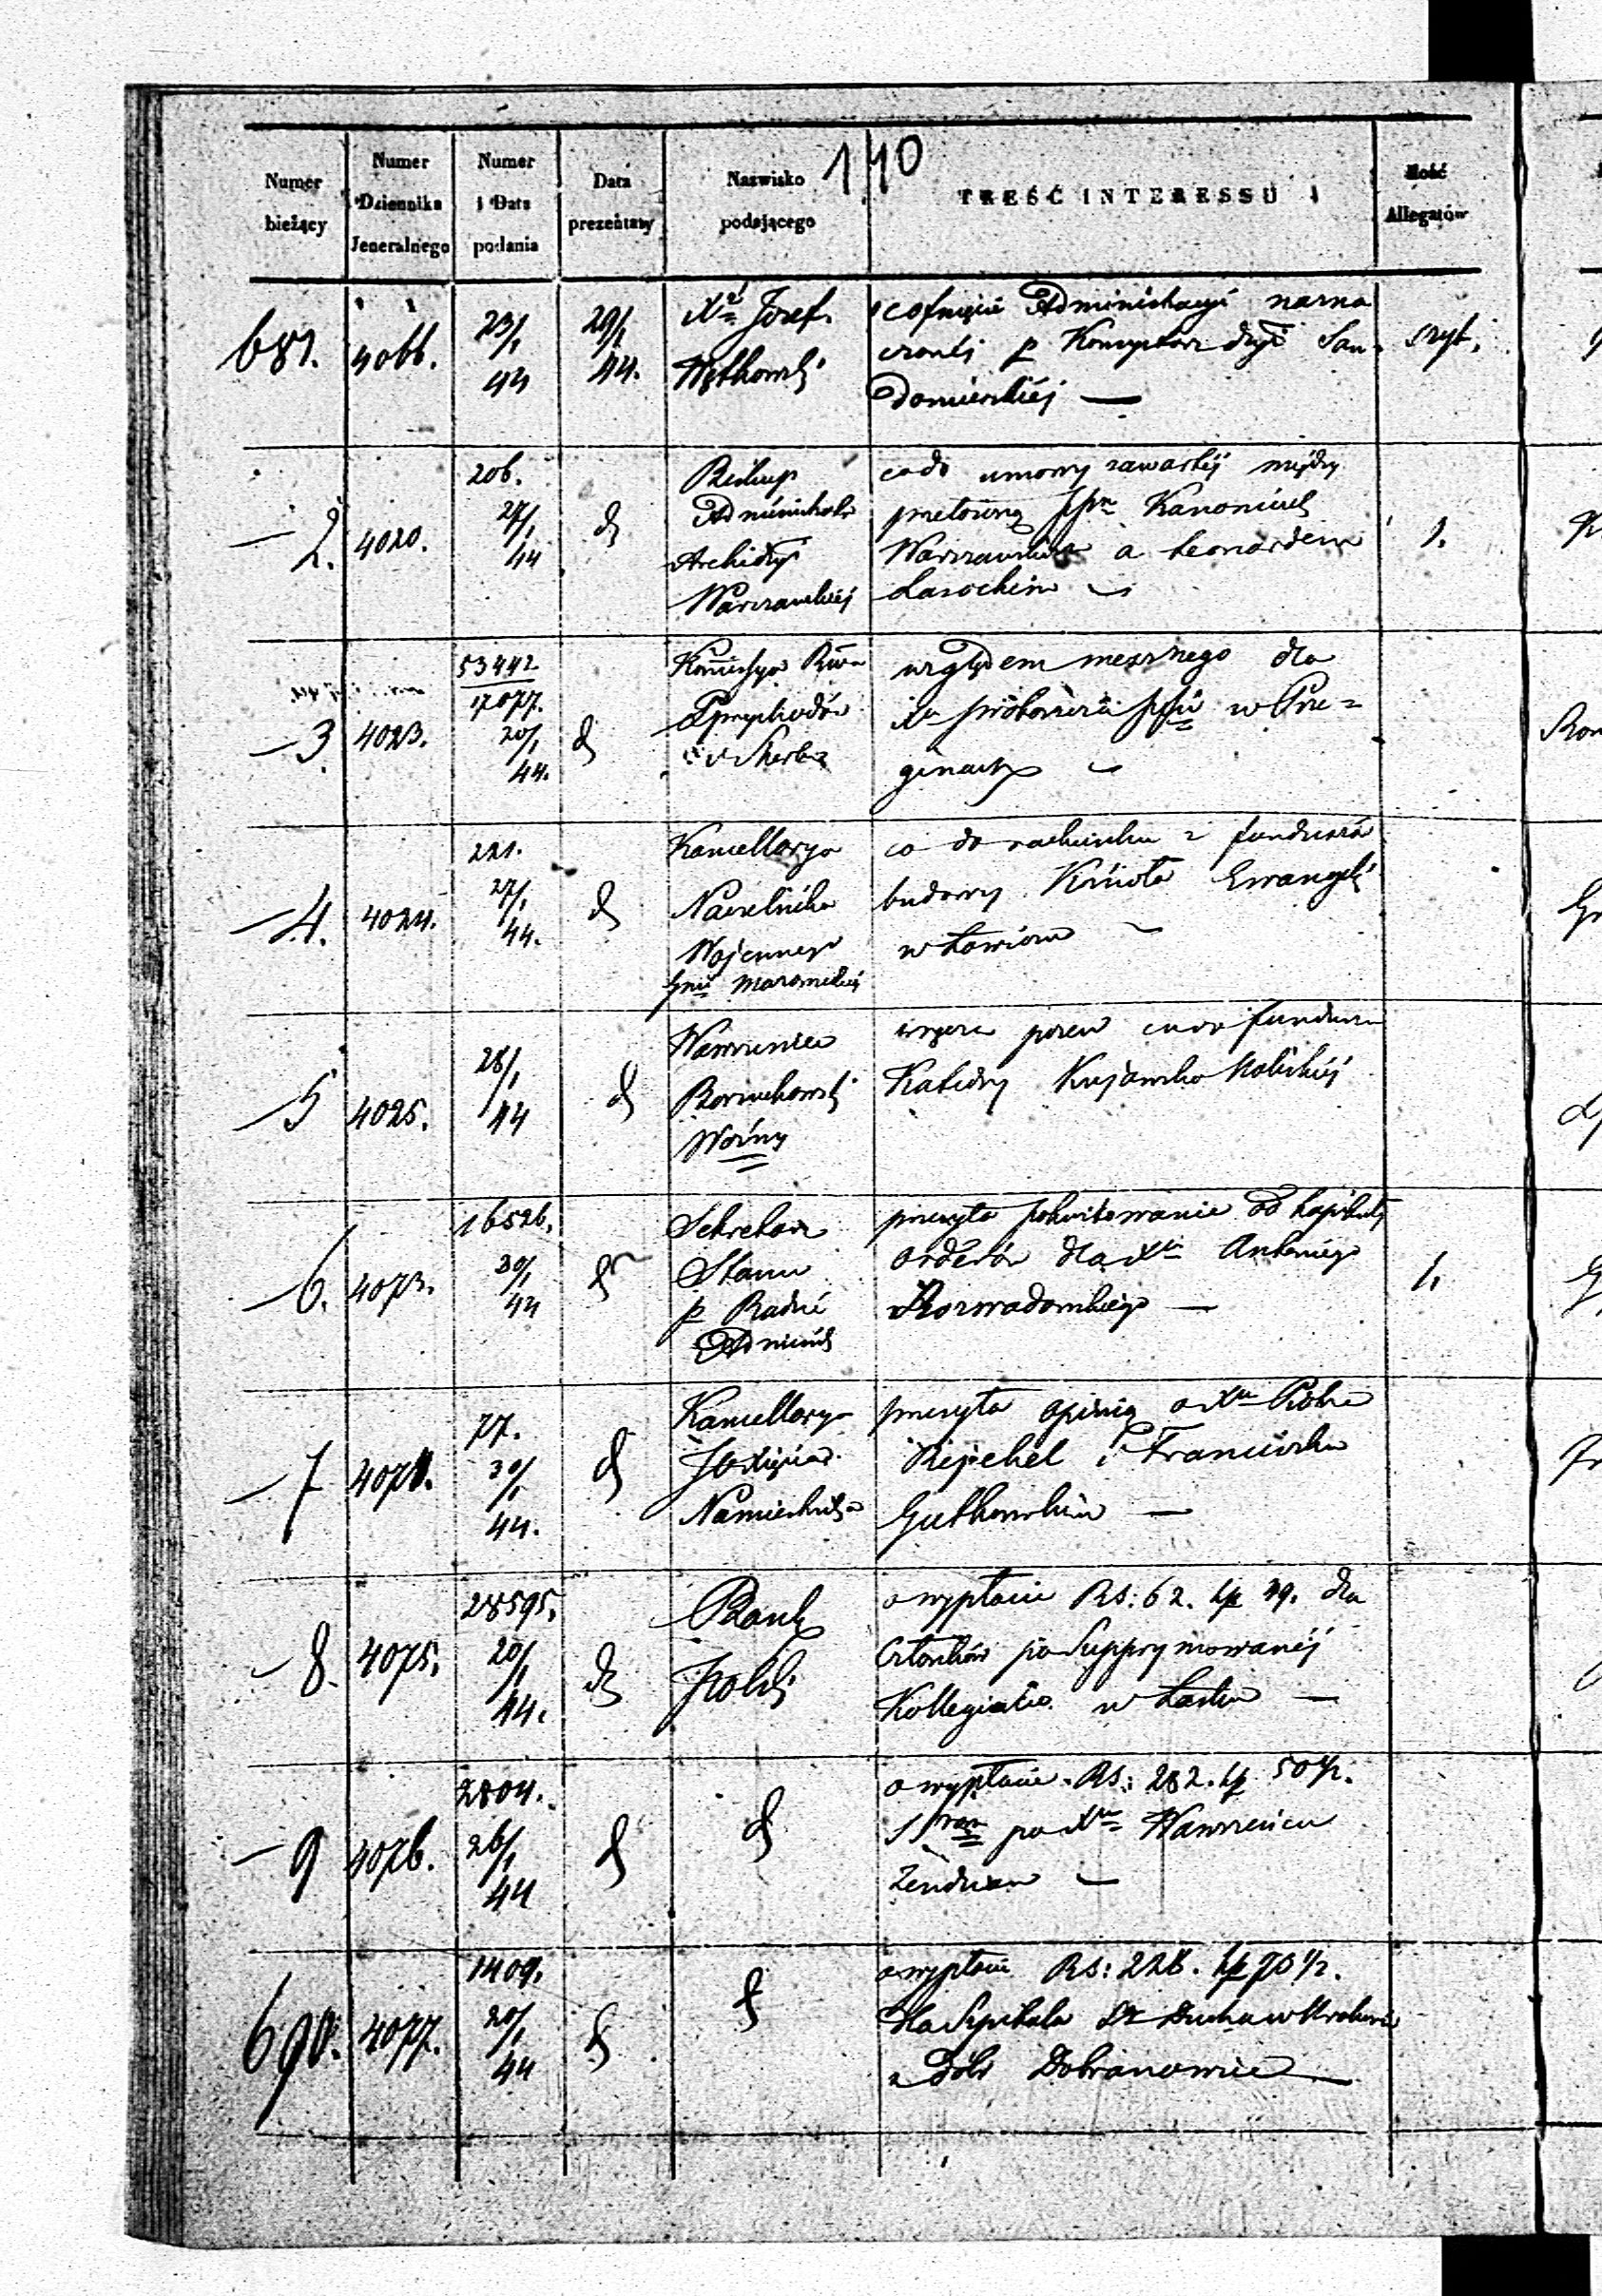 110
Numer bieżący
Numer Dziennika Jeneralnego
Numer i Data podania
Data prezentaty
Nazwisko podającego
TREŚĆ INTERESSU
Ilość Allegatów
681. 4066. 23/1 44 29/1 44.
Xdz Józef
Wątkowski
cofnięcie Administracyi nazna
czonéj p Konsystorz Dyec San
domierskiéj —
szyt.
— 2. 4020. 206. 27/1 44 d
Biskup
Administrator
Archidyec
Warszawskiéj
codo umowy zawartéj między
Kanonicus
Warszawskim a Leonardem
Lasockim
1.
— 3. 4023. 53442 17077. 20/1 44. d
Kommissya
Przychodów
i Skarbu
względem mesznego dla
w Prze=
ginach
— 4. 4024. 221. 27/1 44. d
Kancellarya
Naczelnika
Wojennego
Gnii Mazowieckiéj
co do rachunku z funduszów
budowy Kościoła Ewangeli
w Łowiczu
— 5 4025. 28/1 44 d
Wawrzeniec
Borzuchowski
Woźny
fundusz
Katedry Kujawsko Kaliskiéj
— 6. 4073. 16526. 30/1 44
Sekretarz
Stanu
p Radzie
Adminis
przesyła pokwitowanie od kapituły
orderów dla Xdza Antoniego
Rozwadowskiego —
1.
— 7 4074. 77. 30/1 44. d
Kancellarya
JO Xięcia
Namiestnika
przesyła opinią o Xdzu Piotrze
i Franciszku
Gutkowskim —
— 8. 4075. 28595. 20/1 44. d
Bank
Polski
o wypłacie Rs: 62. kp 49. dla
Członków po Supprymowanéj
Kollegiacie w Łasku —
— 9 4076. 2804. 26/1 44 d d
o wypłacie Rs: 282. kp 50 1/2.
po Xdzu Wawrzeńcu
690. 4077. 1409. 20/1 44 d d
o wypłacie Rs: 228. kp 70 1/2.
dla Szpitala St Ducha w Krakowie
z Dóbr Dobranowice —